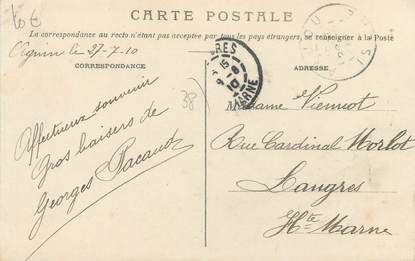 10€
CARTE POSTALE
La correspondance au recto n'étant pas acceptée par tous les pays étrangers, se renseigner à la Poste
le 27-7-10
CORRESPONDANCE
ADRESSE
Affectueux souvenir
Gros baisers de
Georges Pacaud
38
RES
15
10
MARNE
Madame Viennot
Rue Cardinal Morlot
Langres
Hte Marne